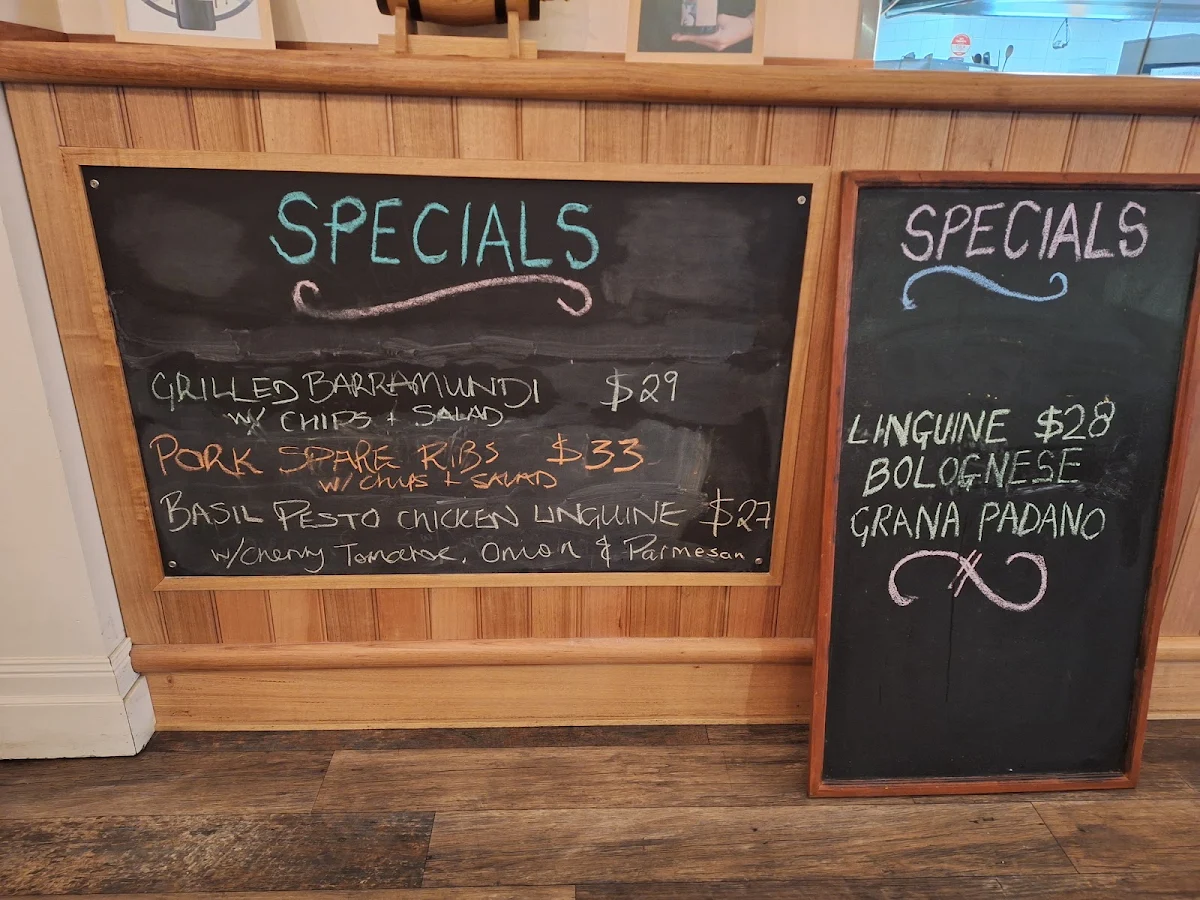 SPECIALS
GRILLED BARRAMUNDI $29
W/ CHIPS + SALAD
PORK SPARE RIBS $33
W/ CHIPS + SALAD
BASIL PESTO CHICKEN LINGUINE $27
w/Cherry Tomatoe, Onion & Parmesan
SPECIALS
LINGUINE $28
BOLOGNESE
GRANA PADANO